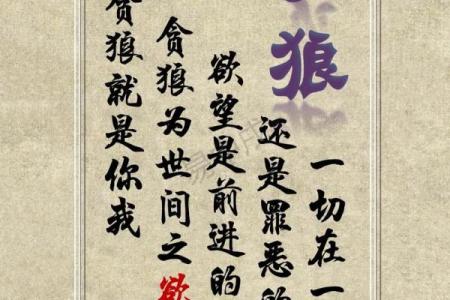 狼
贪狼就是你我
贪狼为世间之欲
欲望是前进的
还是罪恶的
一切在一